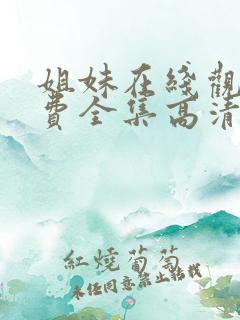 姐妹在綫觀
費全集高清
紅燒葡萄
未經同意禁止轉載